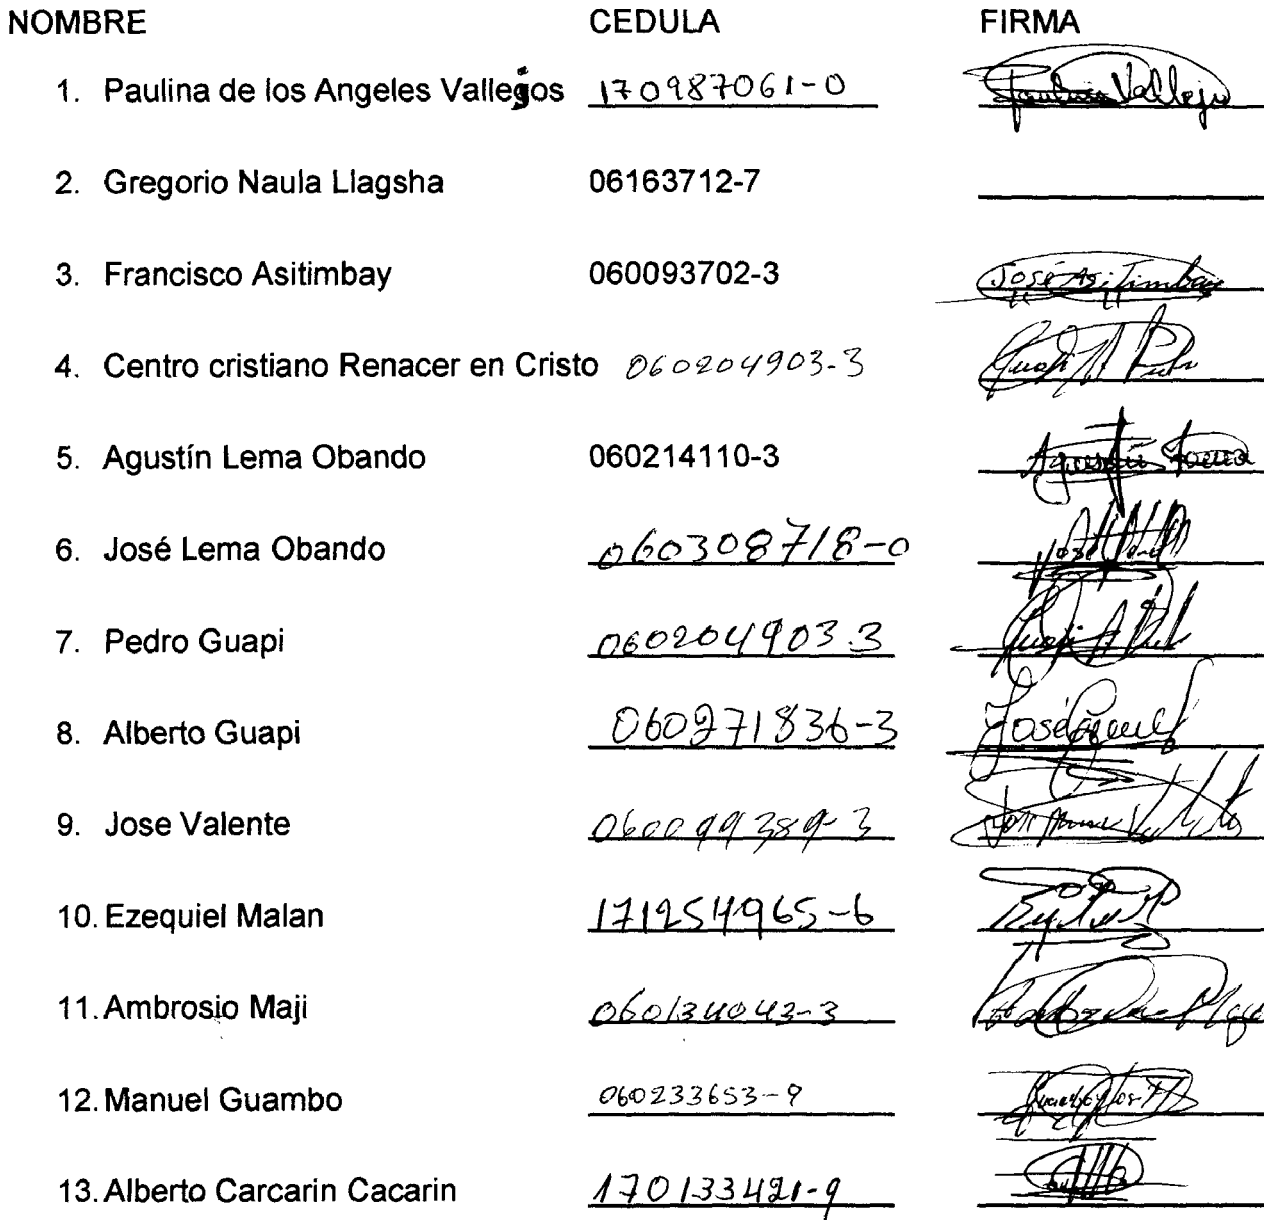 NOMBRE CEDULA FIRMA
1. Paulina de los Angeles Vallejos 170987061-0 Paulina Vallejo
2. Gregorio Naula Llagsha 06163712-7
3. Francisco Asitimbay 060093702-3 José Asitimbay
4. Centro cristiano Renacer en Cristo 060204903-3
5. Agustín Lema Obando 060214110-3 Agustín Lema
6. José Lema Obando 060308718-0 José
7. Pedro Guapi 060204903-3
8. Alberto Guapi 060271836-3 José
9. Jose Valente 060099389-3
10. Ezequiel Malan 171254965-6
11. Ambrosio Maji 060134043-3
12. Manuel Guambo 060233653-9
13. Alberto Carcarin Cacarin 170133421-9